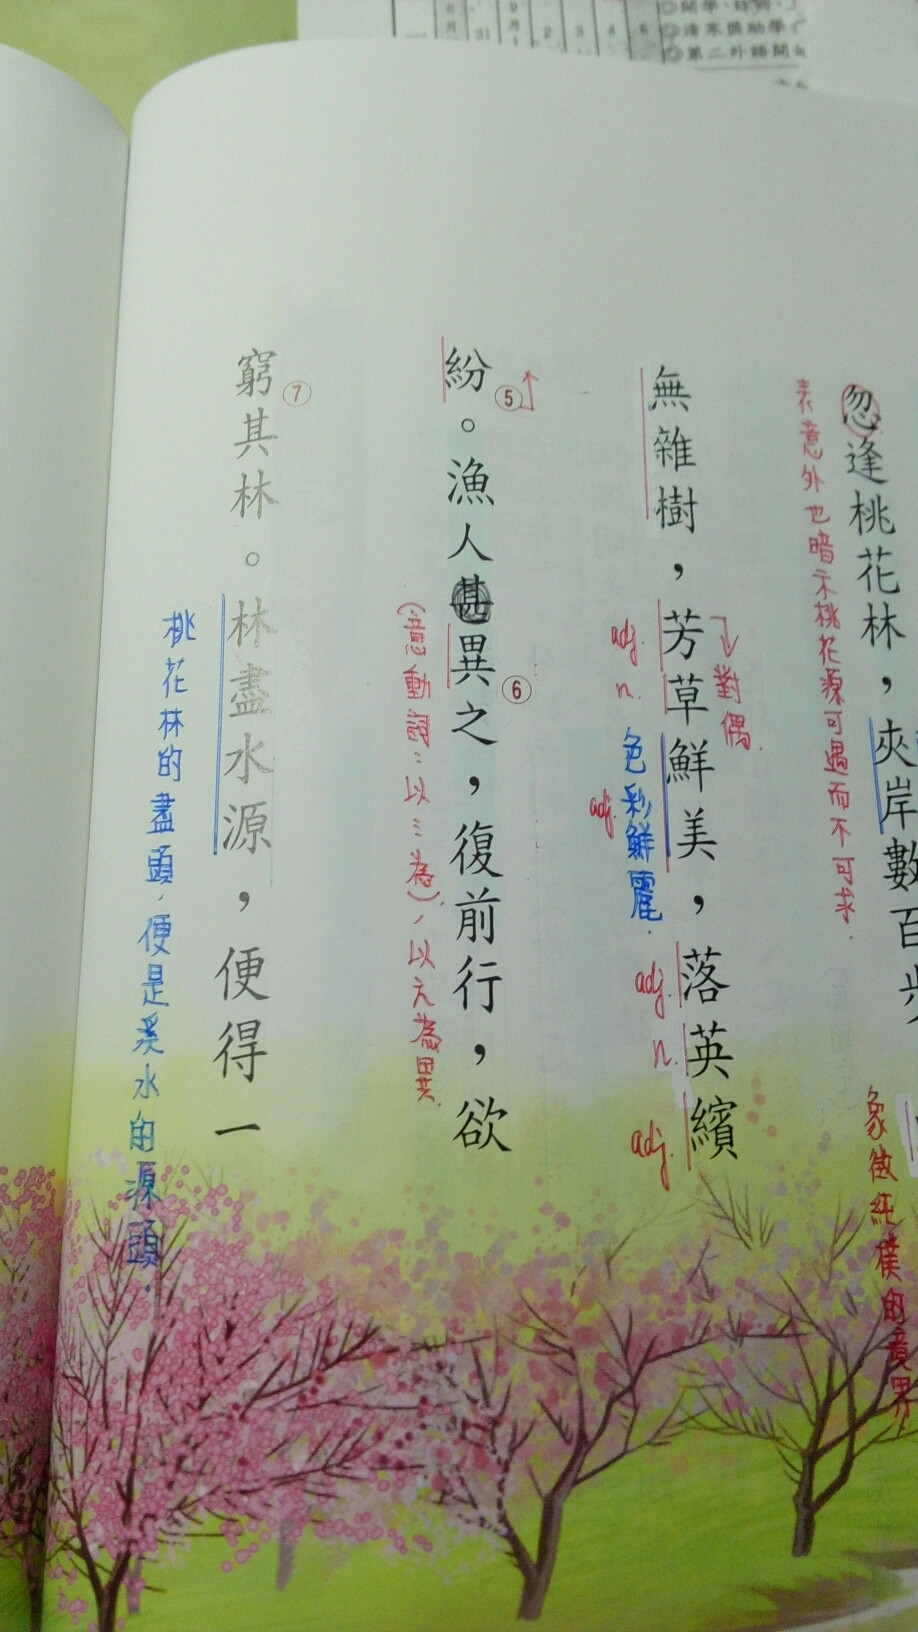 忽逢桃花林，夾岸數百步
表意外也暗示桃花源可遇而不可求.
象徵純樸的意界
無雜樹，芳草鮮美，落英繽
對偶.
adj. n. 色彩鮮麗. adj. adj. n. adj.
紛。漁人甚異之，復前行，欲
⑤ ⑥
(意動詞：以…為)，以之為異.
窮其林。林盡水源，便得一
⑦
桃花林的盡頭，便是溪水的源頭.
8月 31 9月1 2 3 4
清寒獎助學
第二外語開